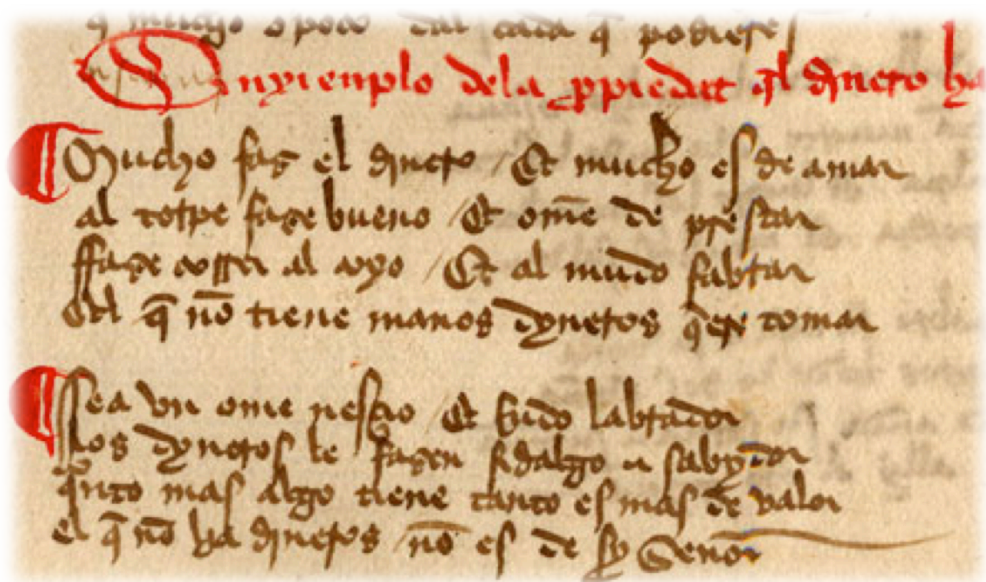 q̃ mucho o poco dal cada q̃ podieres
Enxienplo dela ꝓpiedat q̃l dĩnero ha
Mucho fas el dĩnero / Et mucho es de amar
al torpe fase bueno / Et om̃e de prestar
ffase correr al coxo / Et al mudo fablar
El q̃ nõ tiene manos dyneros q̃ere tomar
Sea vn ome nesçio / Et Rudo labrador
los dyneros le fasen fidalgo e sabydor
q̃nto mas algo tiene tanto es mas de valor
el q̃ nõ ha dĩneros nõ es de sy Señor